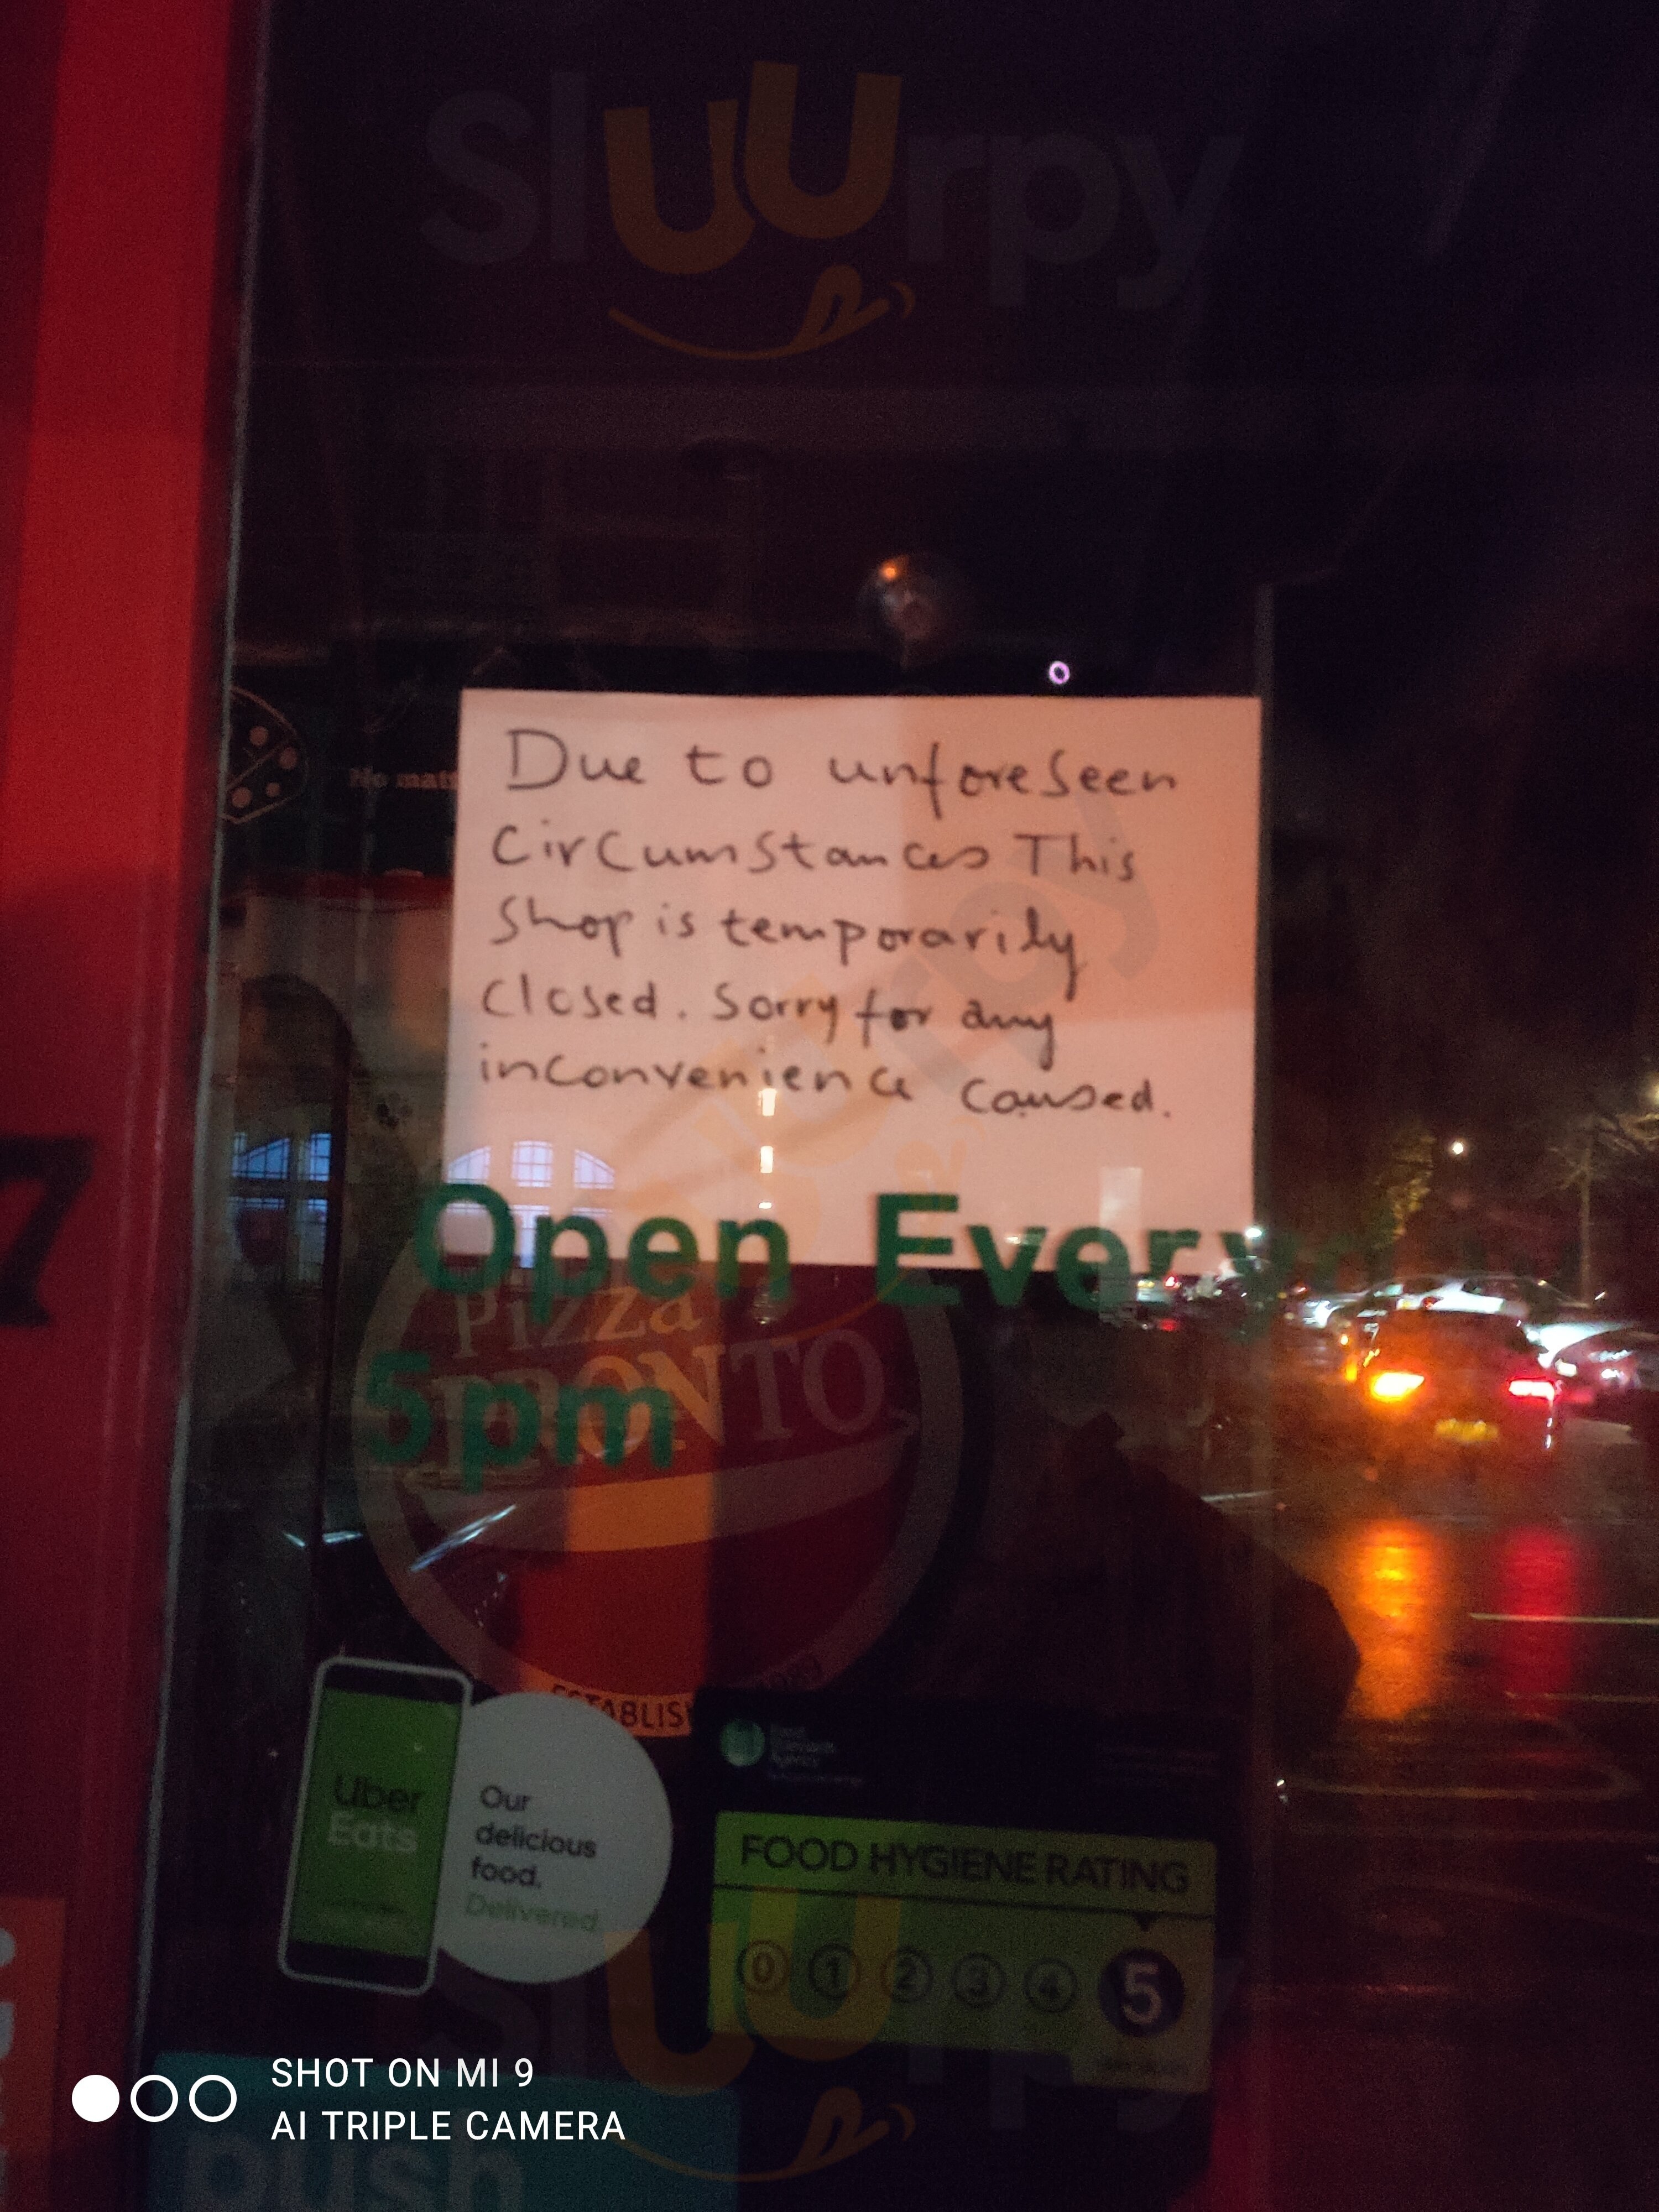 Sluurpy
No
Due to unforeseen
Circumstances This
Shop is temporarily
Closed. Sorry for any
inconvenience caused.
Sluurpy
7
Open Every
5pm
Pizza
PRONTO
Uber
Eats
Our
delicious
food.
Delivered
Food
Standards
Agency
FOOD HYGIENE RATING
0 1 2 3 4 5
Sluurpy
SHOT ON MI 9
AI TRIPLE CAMERA
push